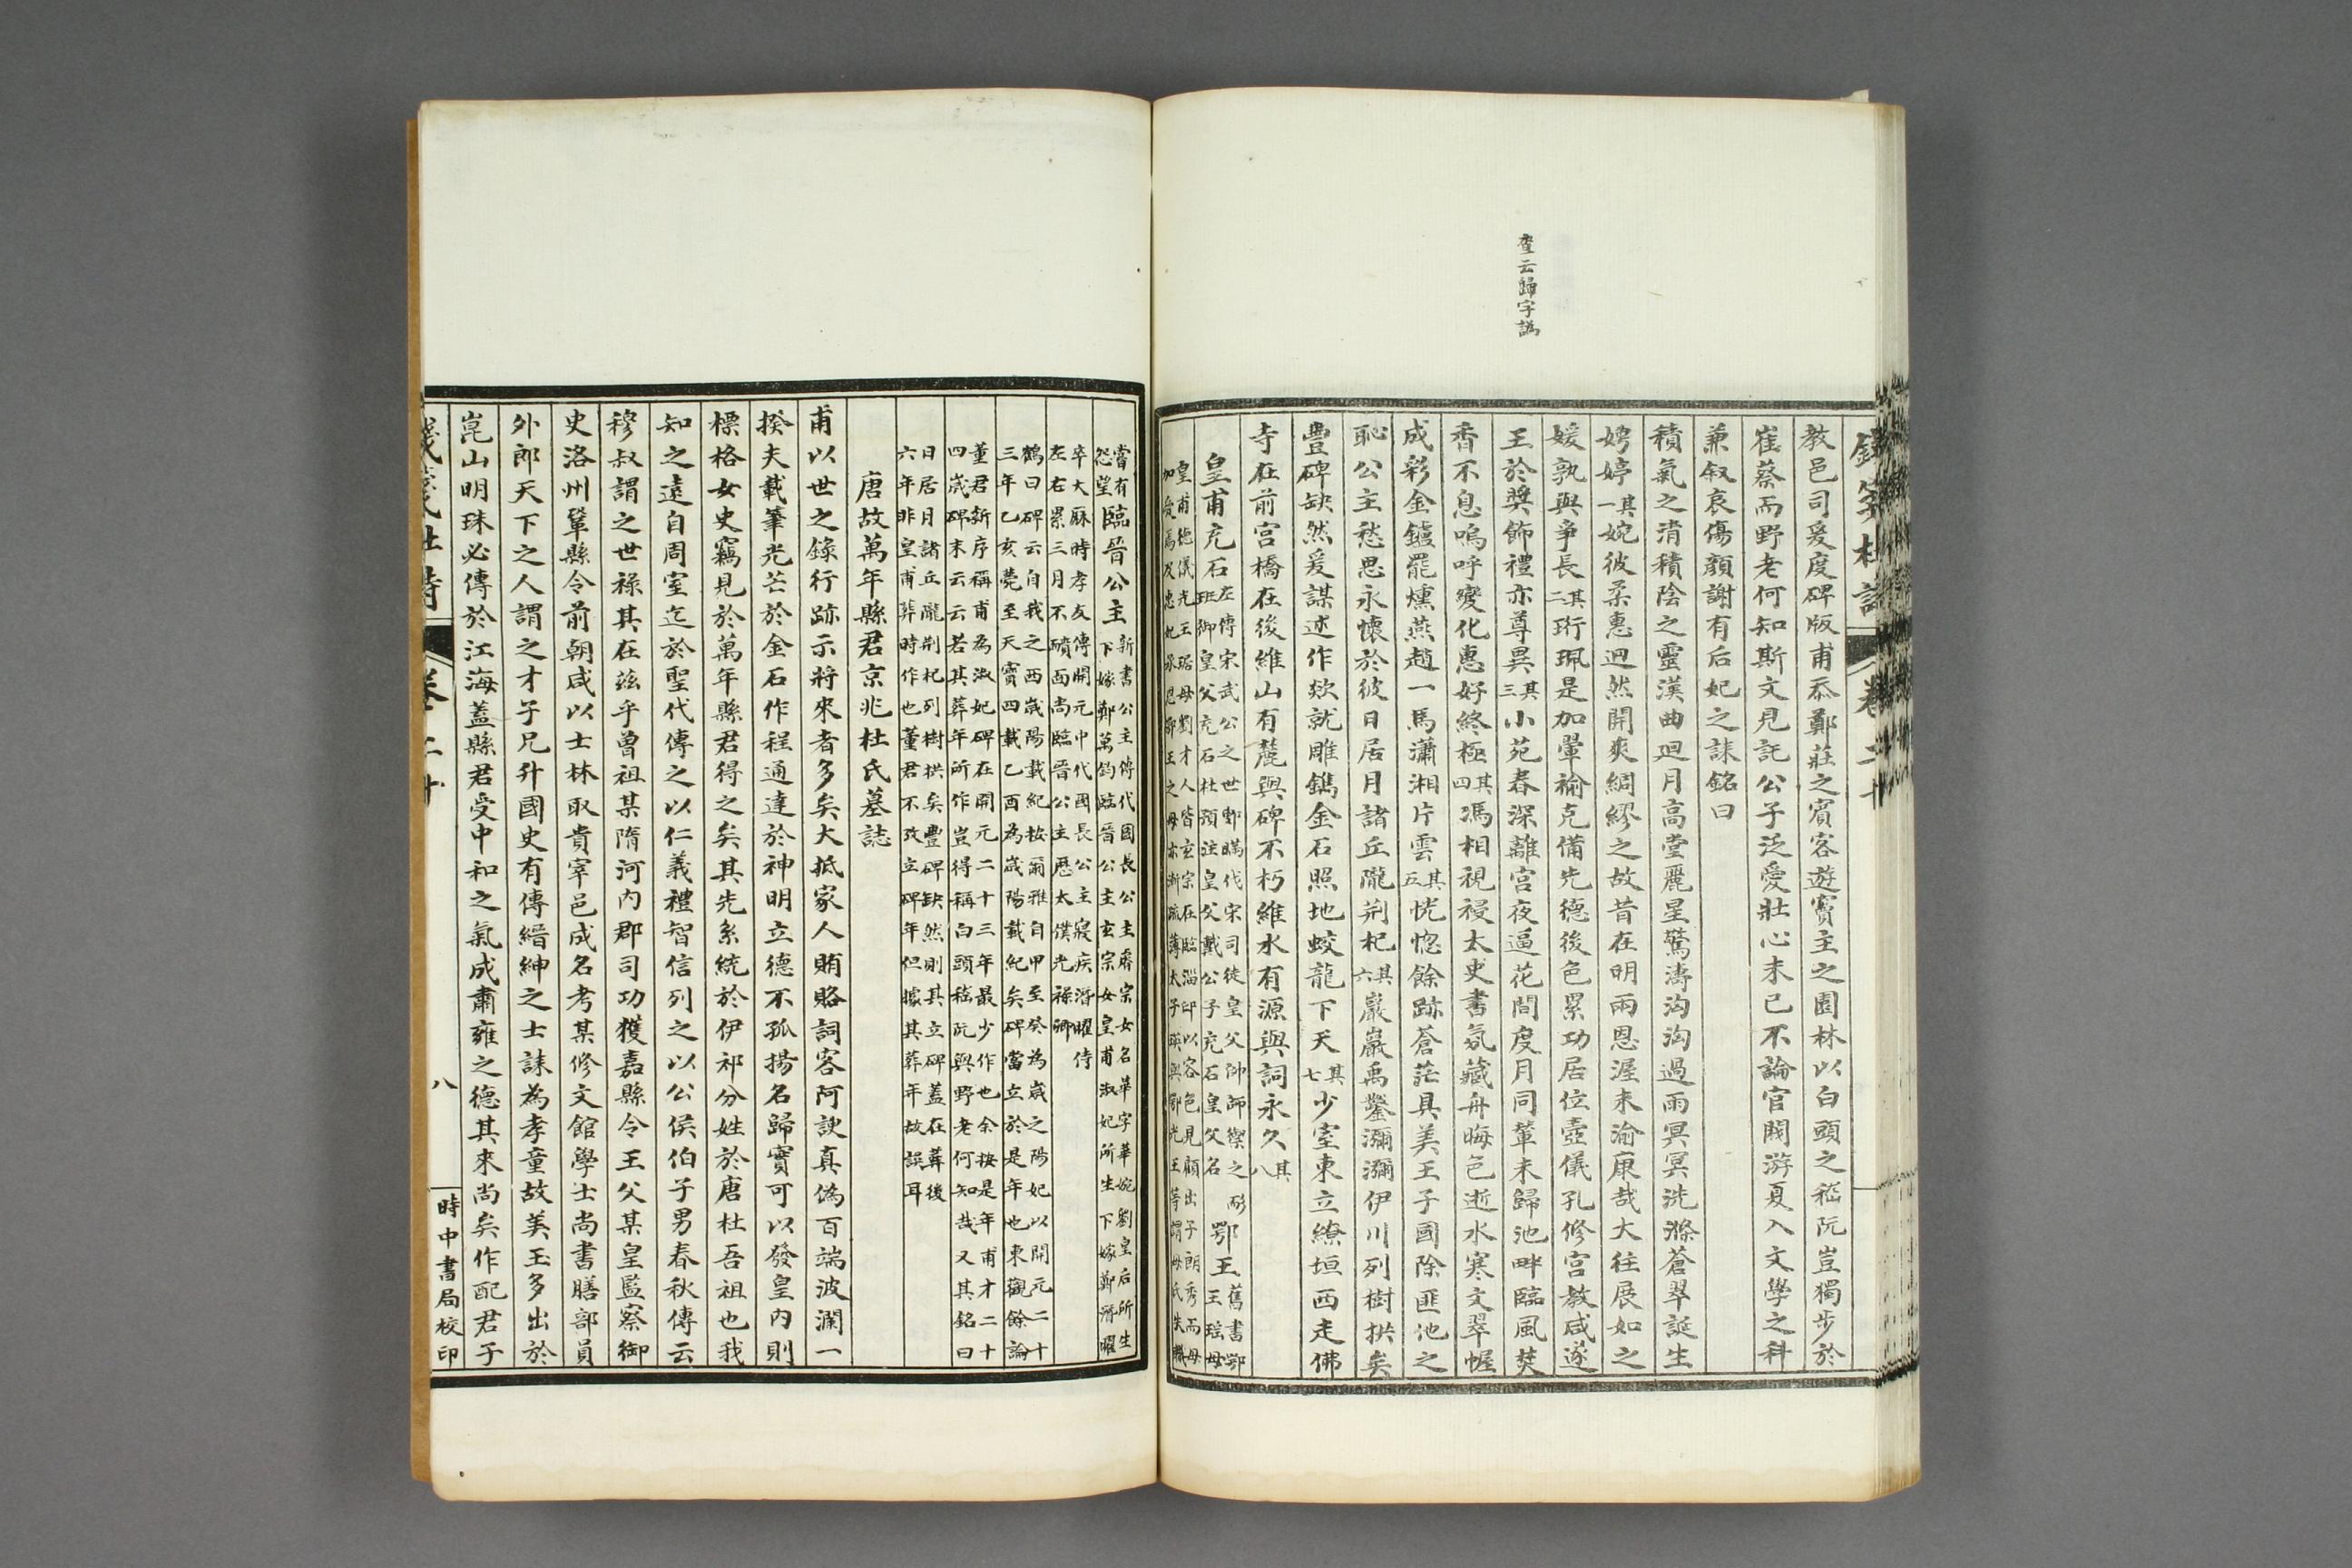 查云歸字譌
教邑司爰度碑版甫忝鄭莊之賓客遊竇主之園林以白頭之嵇阮豈獨步於
崔蔡而野老何知斯文見託公子泛愛壯心未已不論官閥游夏入文學之科
兼叙哀傷顏謝有后妃之誄銘曰
積氣之清積陰之靈漢曲迴月高堂麗星驚濤洶洶過雨冥冥洗滌蒼翠誕生
娉婷其一婉彼柔惠迥然開爽綢繆之故昔在明兩恩渥未渝康哉大往展如之
媛孰與爭長其二珩珮是加翬褕克備先德後色累功居位壼儀孔修宮教咸遂
王於奬飾禮亦尊異其三小苑春深離宮夜逼花間度月同輦未歸池畔臨風焚
香不息嗚呼變化惠好終極其四馮相視祲太史書氛藏舟晦色逝水寒文翠幄
成彩金鑪罷燻燕趙一馬瀟湘片雲其五恍惚餘跡蒼茫具美王子國除匪他之
恥公主愁思永懷於彼日居月諸丘隴荆杞其六巖巖禹鑿瀰瀰伊川列樹拱矣
豐碑缺然爰謀述作欻就雕鐫金石照地蛟龍下天其七少室東立繚垣西走佛
寺在前宮橋在後維山有麓與碑不朽維水有源與詞永久其八
皇甫充石左傳宋武公之世鄋瞞代宋司徒皇父帥師禦之耏班御皇父充石杜預注皇父戴公子充石皇父名鄂王舊書鄂王瑶母
皇甫德儀光王琚母劉才人皆玄宗在臨淄邸以容色見顧出子朗秀而母加愛焉及惠妃承恩鄂王之母亦漸疏薄太子瑛與鄂光王等謂母氏失職
嘗有怨望臨晉公主新書公主傳代國長公主睿宗女名華字華婉劉皇后所生下嫁鄭萬鈞臨晉公主玄宗女皇甫淑妃所生下嫁鄭潛曜
卒大厤時孝友傳開元中代國長公主寢疾潛曜侍左右累三月不礩面尚臨晉公主歷太僕光祿卿
鶴曰碑云自我之西歲陽載紀按爾雅自甲至癸為歲之陽妃以開元二十三年乙亥薨至天寶四載乙酉為歲陽載紀矣碑當立於是年也東觀餘論
董君新序稱甫為淑妃碑在開元二十三年最少作也余按是年甫才二十四歲碑末云云若其葬年所作豈得稱白頭嵇阮與野老何知哉又其銘曰
日居月諸丘隴荆杞列樹拱矣豐碑缺然則其立碑蓋在葬後六年非皇甫葬時作也董君不攷立碑年但據其葬年故誤耳
唐故萬年縣君京兆杜氏墓誌
甫以世之錄行跡示將來者多矣大抵家人賄賂詞客阿諛真偽百端波瀾一
揆夫載筆光芒於金石作程通達於神明立德不孤揚名歸實可以發皇内則
標格女史竊見於萬年縣君得之矣其先系統於伊祁分姓於唐杜吾祖也我
知之遠自周室迄於聖代傳之以仁義禮智信列之以公侯伯子男春秋傳云
穆叔謂之世祿其在兹乎曾祖某隋河内郡司功獲嘉縣令王父某皇監察御
史洛州鞏縣令前朝咸以士林取貴宰邑成名考某修文館學士尚書膳部員
外郎天下之人謂之才子兄升國史有傳縉紳之士誄為孝童故美玉多出於
崑山明珠必傳於江海蓋縣君受中和之氣成肅雍之德其來尚矣作配君子
八
時中書局校印